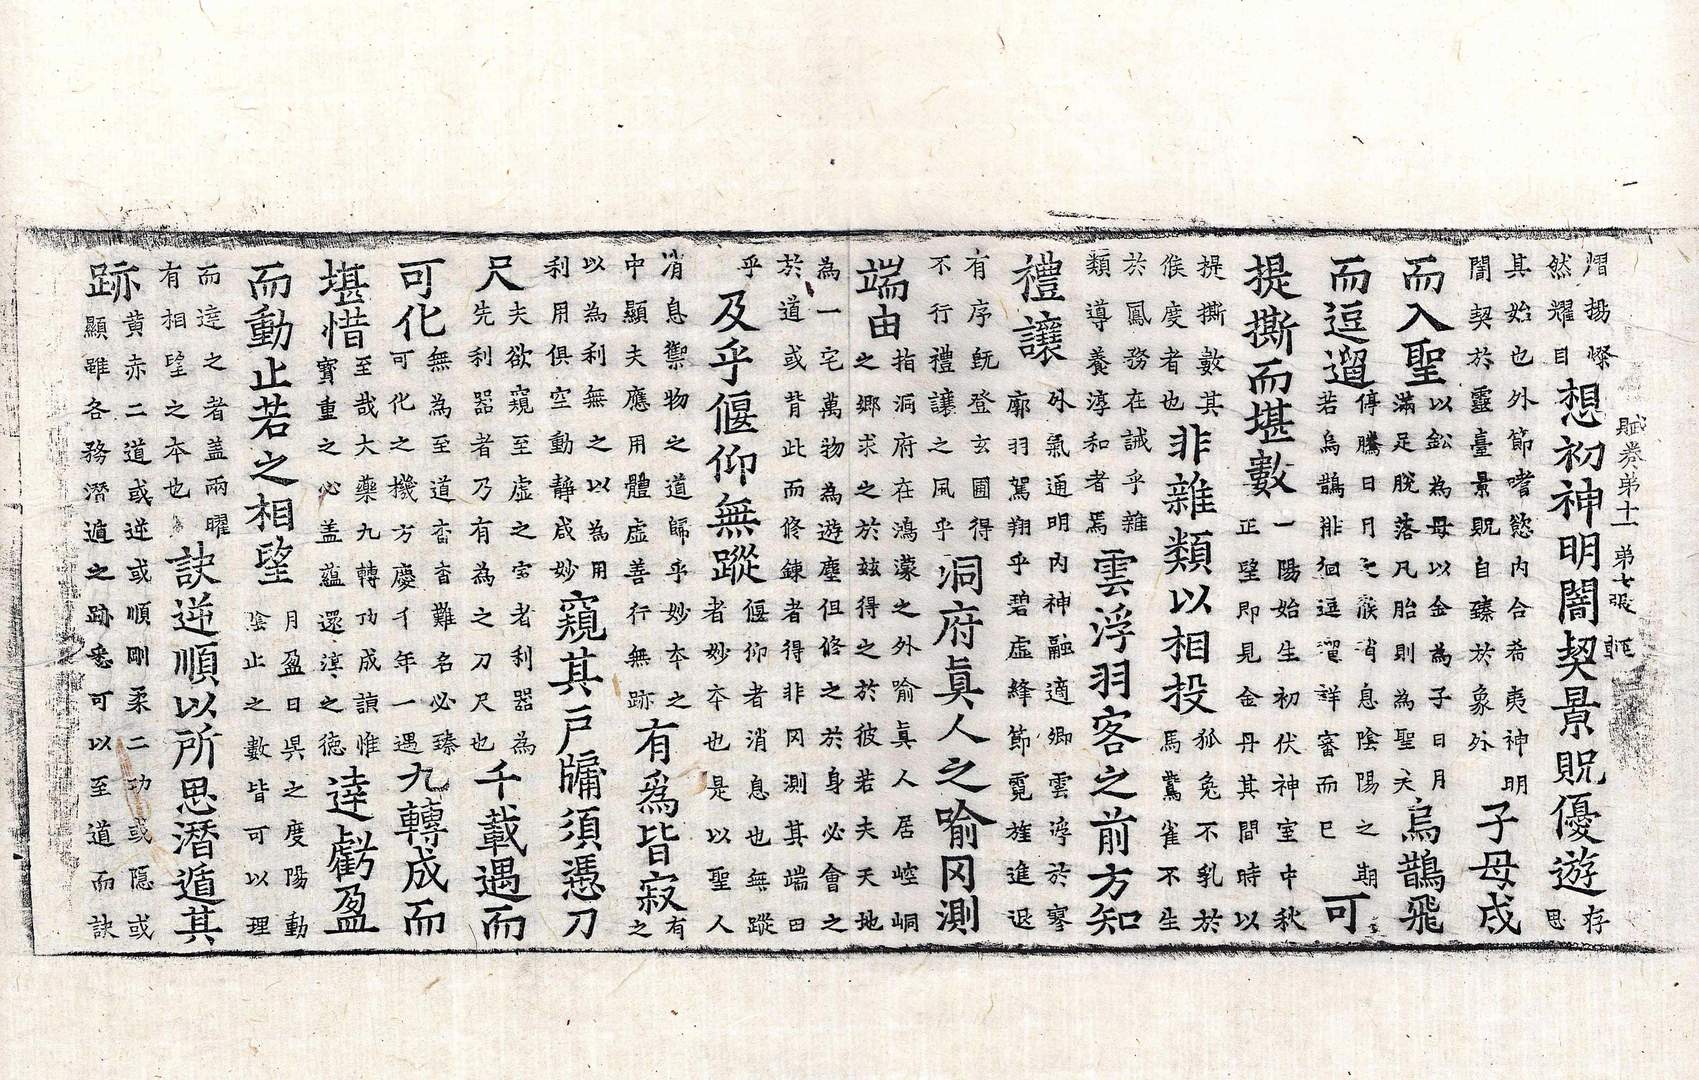 賦卷第十一 第七張
熠揚㷿然耀目想初神明闇契景貺優遊存思
其始也外節嗜慾內合希夷神明闇契於靈臺景貺自臻於象外子母成
而入聖以鈆為母以金為子日月滿足脫落凡胎則為聖矣烏鵲飛
而逗遛停騰日月之候消息陰陽之期若烏鵲徘徊逗遛詳審而已可
提撕而堪數一陽始生初伏神室中秋正望即見金丹其間時以
提撕數其候度者也非雜類以相投狐兔不乳於馬鷰雀不生
於鳳務在誡乎雜類導養淳和者焉雲浮羽客之前方知
禮讓外氣通明內神融適卿雲浮於寥廓羽駕翔乎碧虛絳節霓旌進退
有序旣登玄圃得不行禮讓之風乎洞府眞人之喻罔測
端由指洞府在鴻濛之外喻眞人居崆峒之鄉求之於玆得之於彼若夫天地
為一宅萬物為遊塵但修之於身必會之於道或背此而修鍊者得非罔測其端由
乎及乎偃仰無蹤偃仰者消息也無蹤者妙本也是以聖人
消息禦物之道歸乎妙本之中顯夫應用體虛善行無跡有爲皆寂有之
以為利無之以為用利用俱空動静咸妙窺其戶牖須憑刀
尺夫欲窺至虛之室者利器為先利器者乃有為之刀尺也千載遇而
可化無為至道杳杳難名必臻可化之機方慶千年一遇九轉成而
堪惜至哉大藥九轉功成諒惟寶重之必盖蘊還淳之德達虧盈
而動止若之相望月盈日昃之度陽動陰止之數皆可以理
而達之者盖兩曜有相望之本也訣逆順以所思潛遁其
跡黄赤二道或逆或順剛柔二功或隱或顯雖各務潛遁之跡悉可以至道而訣